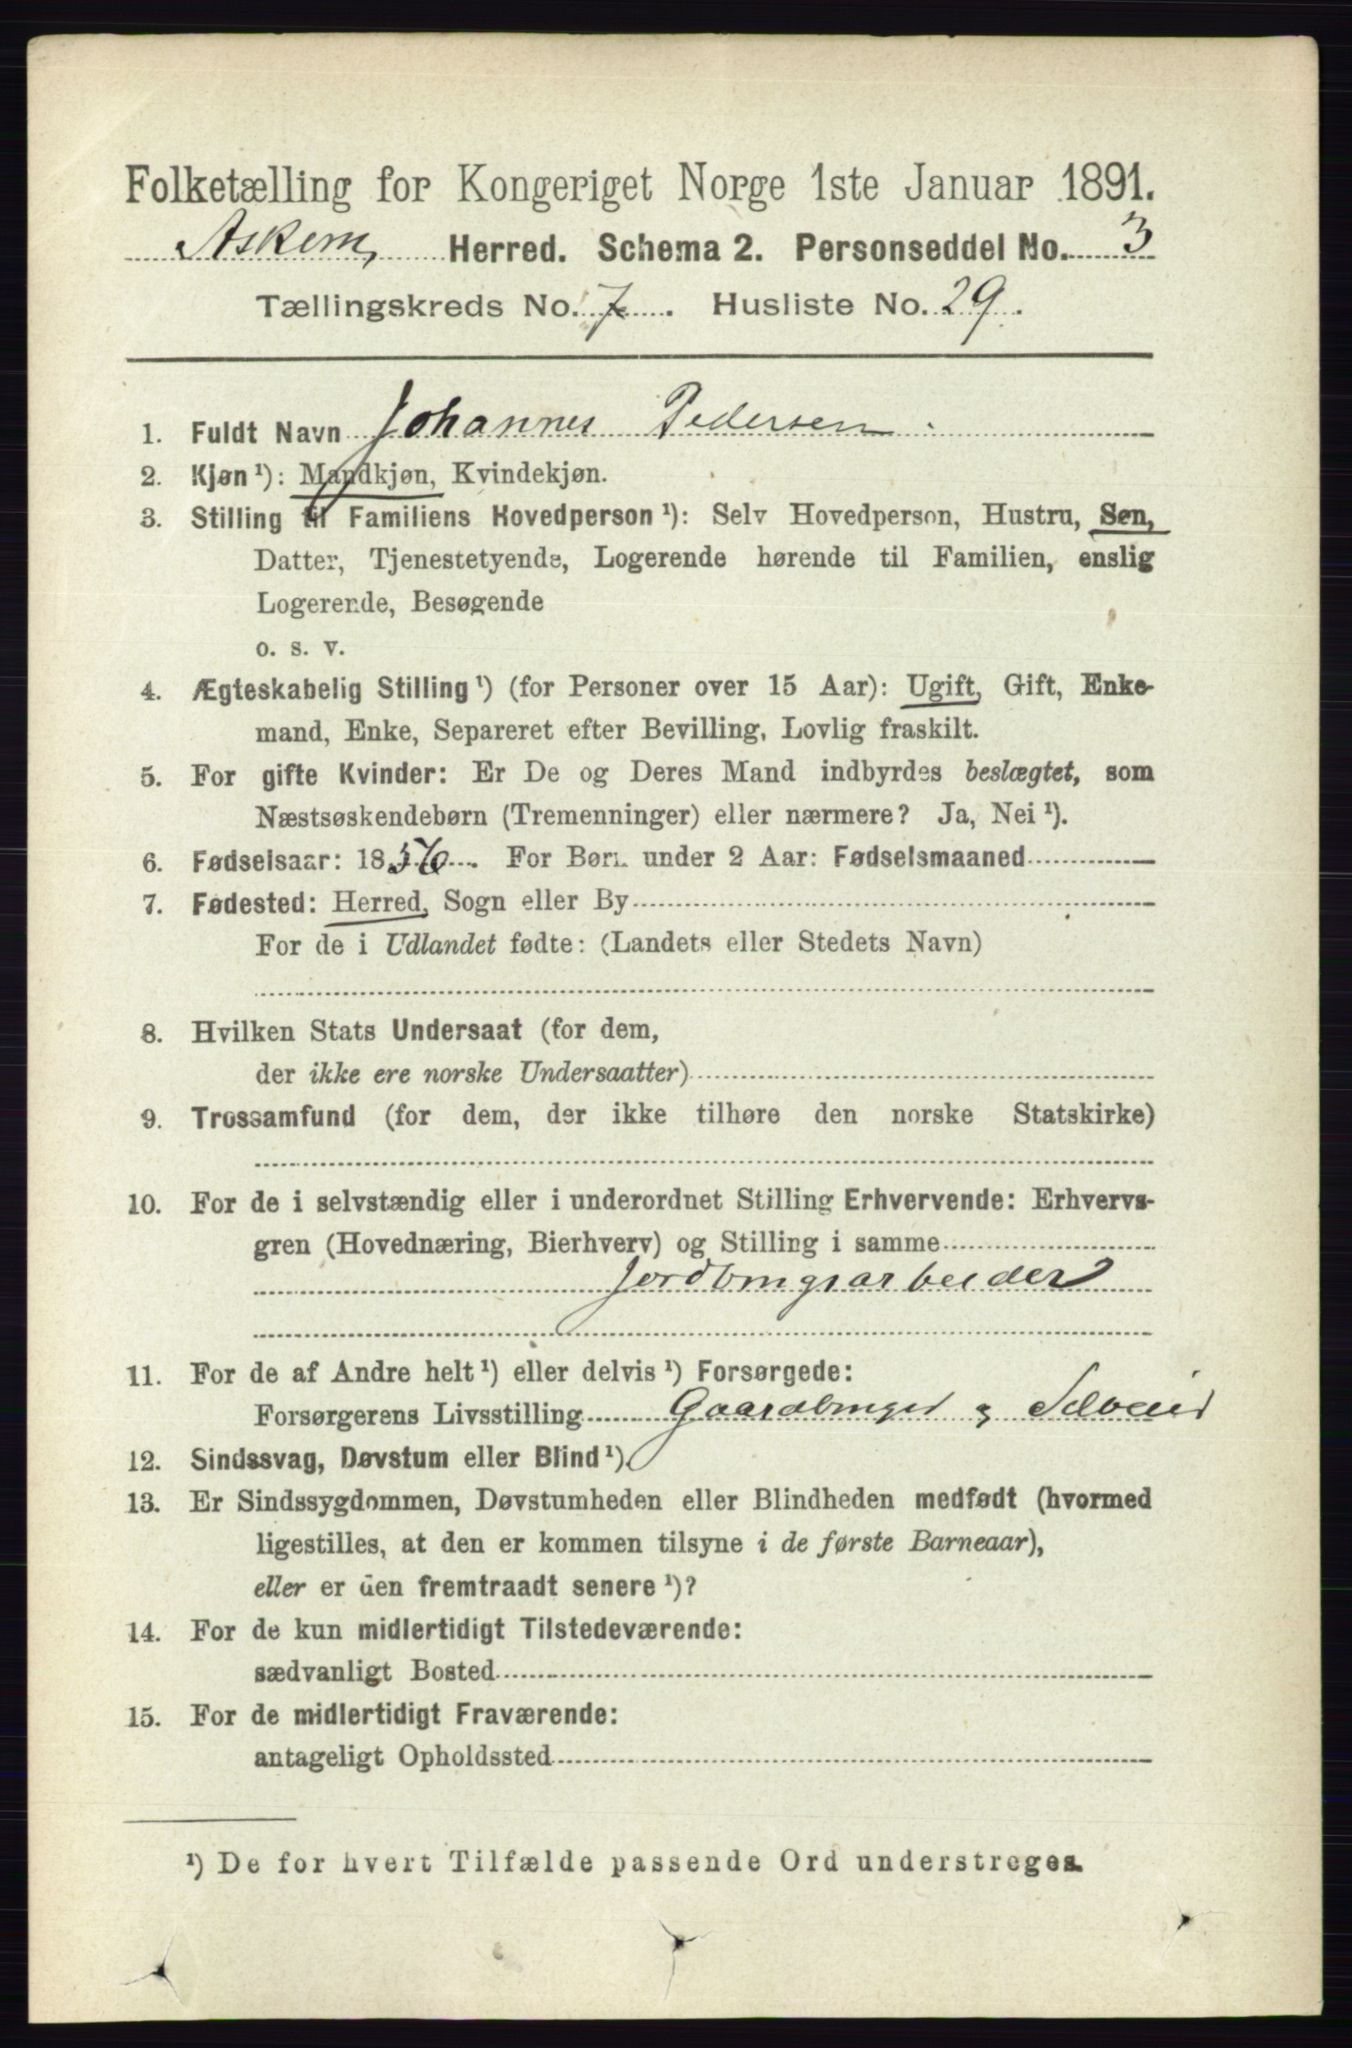 Folketælling for Kongeriget Norge 1ste Januar 1891.
Askim Herred. Schema 2. Personseddel No. 3
Tællingskreds No. 7. Husliste No. 29.
1. Fuldt Navn Johannes Pedersen.
2. Kjøn¹): Mandkjøn, Kvindekjøn.
3. Stilling til Familiens Hovedperson¹): Selv Hovedperson, Hustru, Søn,
Datter, Tjenestetyende, Logerende hørende til Familien, enslig
Logerende, Besøgende
o. s. v.
4. Ægteskabelig Stilling¹) (for Personer over 15 Aar): Ugift, Gift, Enke-
mand, Enke, Separeret efter Bevilling, Lovlig fraskilt.
5. For gifte Kvinder: Er De og Deres Mand indbyrdes beslægtet, som
Næstsøskendebørn (Tremenninger) eller nærmere? Ja, Nei¹).
6. Fødselsaar: 1856. For Børn under 2 Aar: Fødselsmaaned
7. Fødested: Herred, Sogn eller By
For de i Udlandet fødte: (Landets eller Stedets Navn)
8. Hvilken Stats Undersaat (for dem,
der ikke ere norske Undersaatter)
9. Trossamfund (for dem, der ikke tilhøre den norske Statskirke)
10. For de i selvstændig eller i underordnet Stilling Erhvervende: Erhvervs-
gren (Hovednæring, Bierhverv) og Stilling i samme
Jordbrugsarbeider
11. For de af Andre helt¹) eller delvis¹) Forsørgede:
Forsørgerens Livsstilling Gaardbruger og Selveier
12. Sindssvag, Døvstum eller Blind¹).
13. Er Sindssygdommen, Døvstumheden eller Blindheden medfødt (hvormed
ligestilles, at den er kommen tilsyne i de første Barneaar),
eller er den fremtraadt senere¹)?
14. For de kun midlertidigt Tilstedeværende:
sædvanligt Bosted
15. For de midlertidigt Fraværende:
antageligt Opholdssted
¹) De for hvert Tilfælde passende Ord understreges.